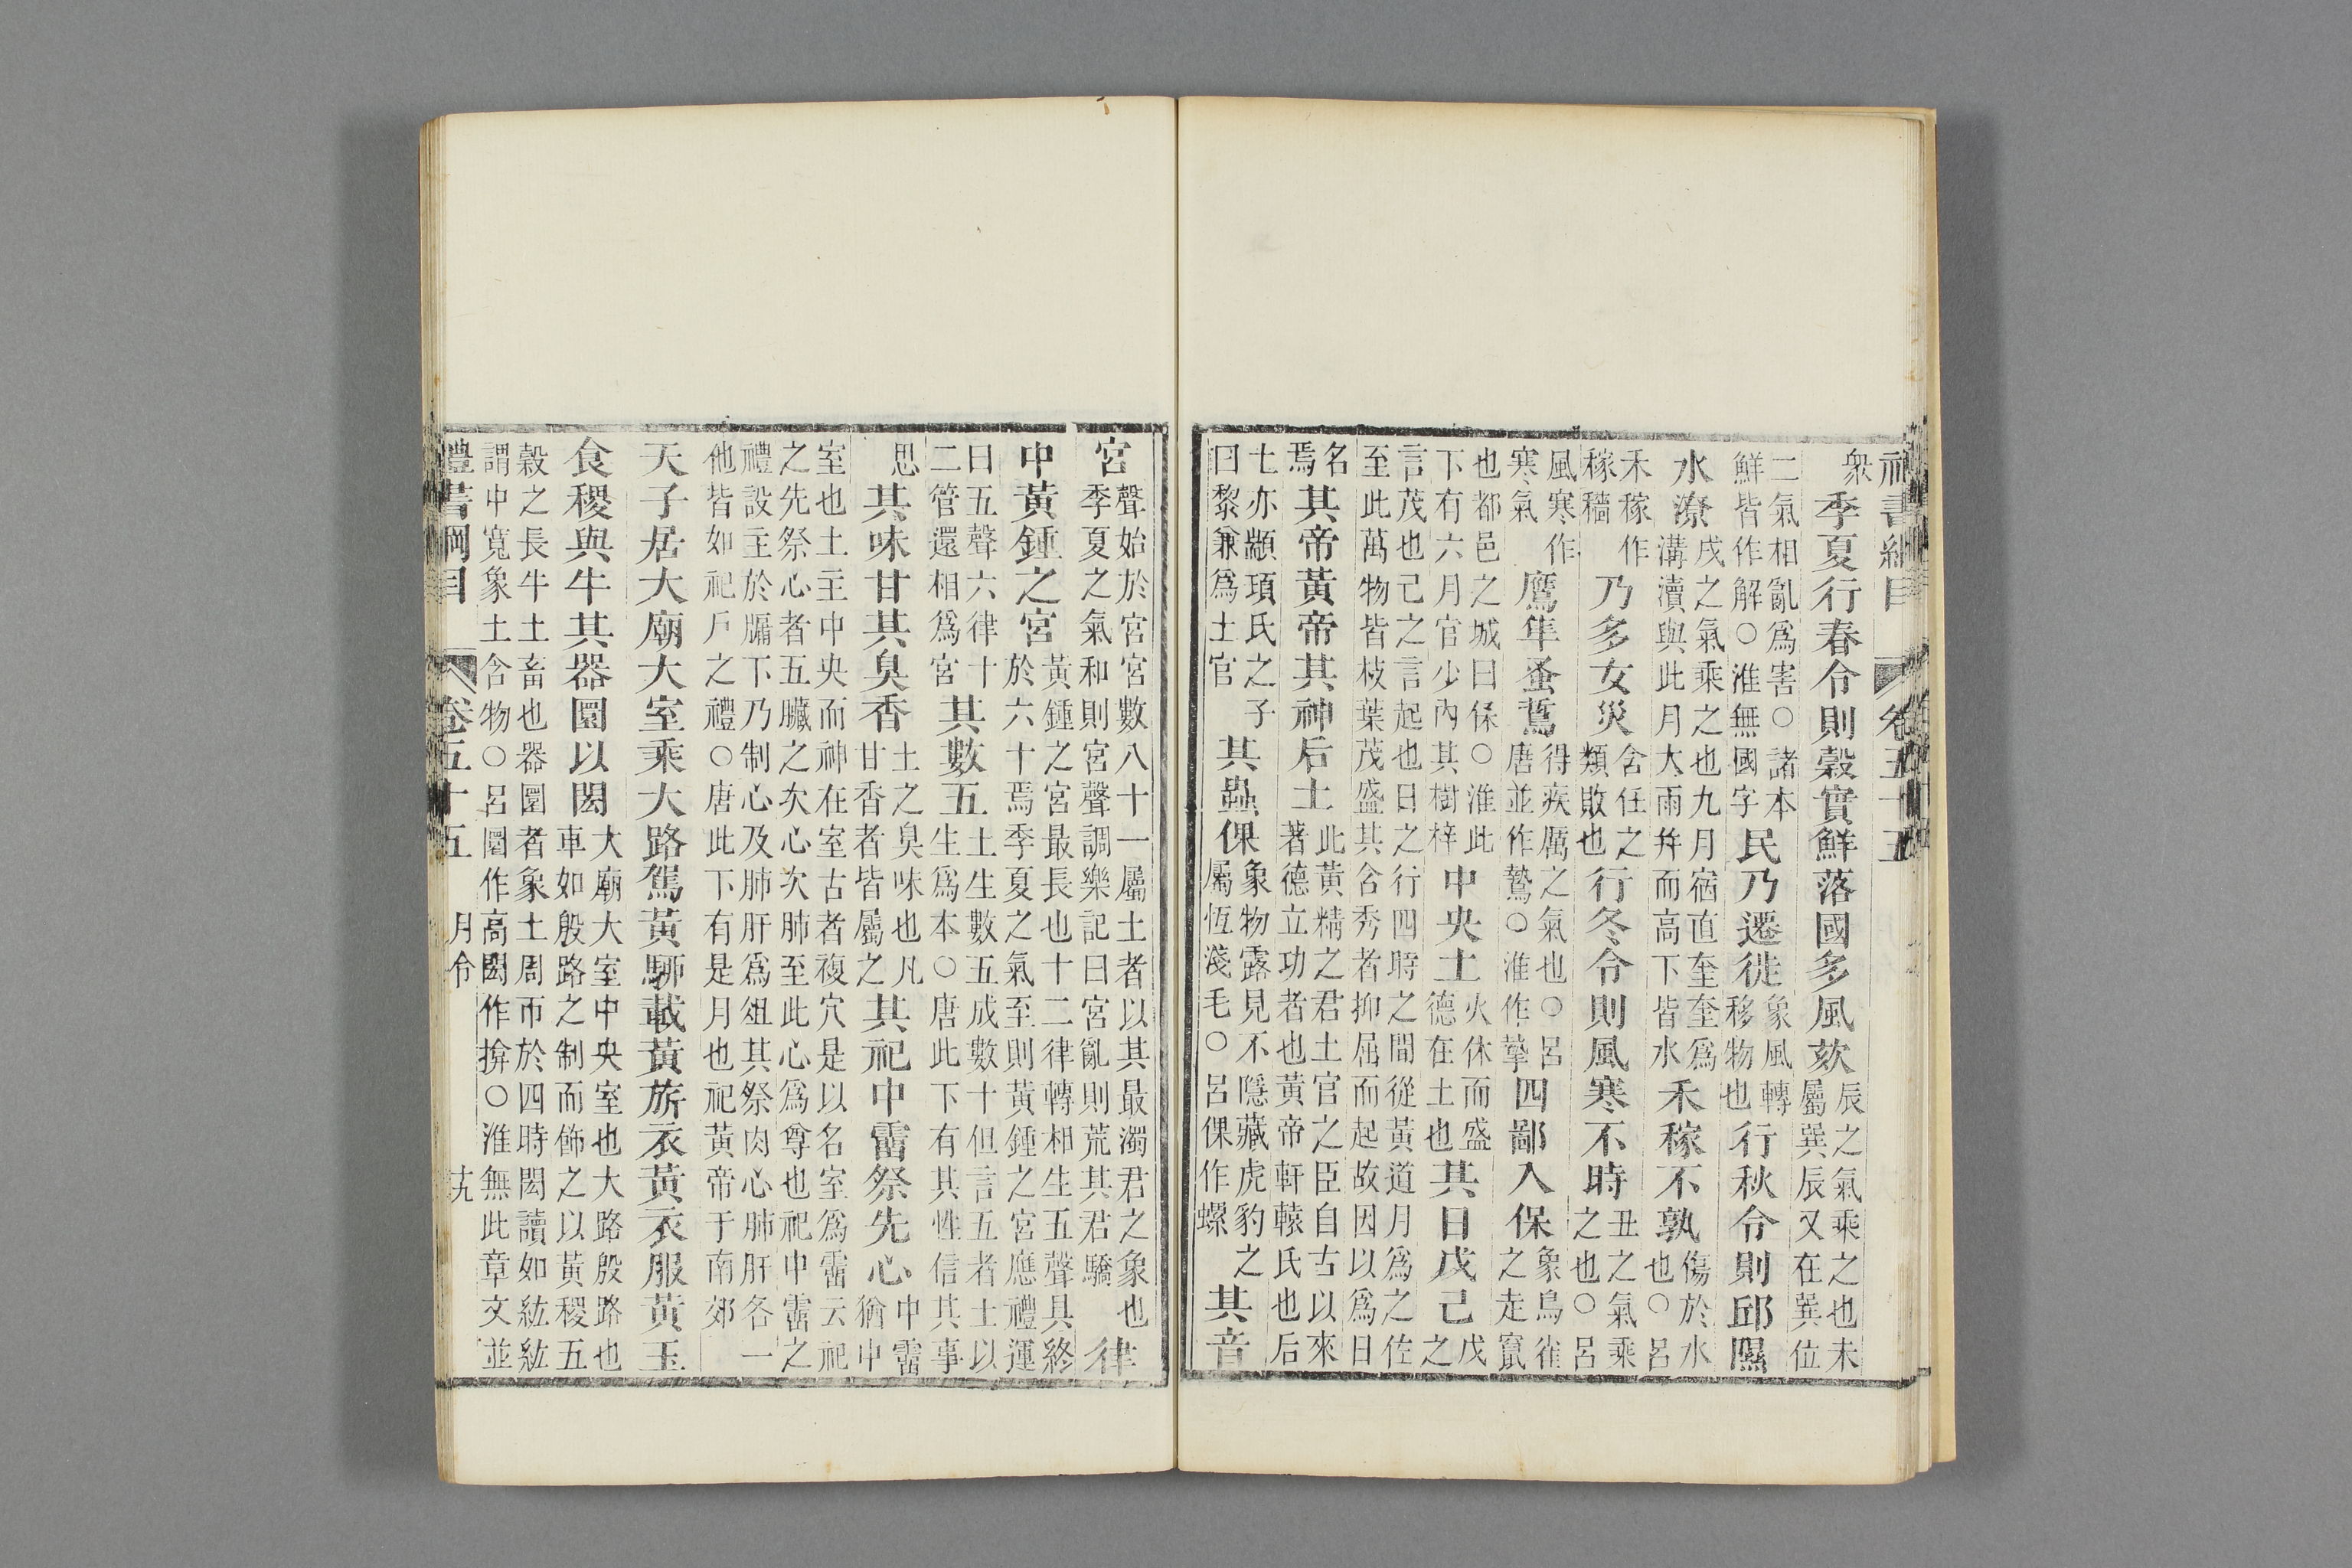 禮書綱目 卷五十五
衆 季夏行春令則穀實鮮落國多風欬 辰之氣乘之也未屬巽辰又在巽位
二氣相亂爲害○諸本鮮皆作解○淮無國字 民乃遷徙 象風轉移物也 行秋令則邱隰
水潦 戌之氣乘之也九月宿直奎奎爲溝瀆與此月大雨并而高下皆水 禾稼不孰 傷於水也○呂
禾稼作稼穡 乃多女災 含任之類敗也 行冬令則風寒不時 丑之氣乘之也○呂
風寒作寒氣 鷹隼蚤鷙 得疾厲之氣也○呂唐並作鷙○淮作摯 四鄙入保 象鳥雀之走竄
也都邑之城曰保○淮此下有六月官少內其樹梓 中央土 火休而盛德在土也 其日戊己 戊之
言茂也己之言起也日之行四時之間從黃道月爲之佐至此萬物皆枝葉茂盛其含秀者抑屈而起故因以爲日
名焉 其帝黃帝其神后土 此黃精之君土官之臣自古以來著德立功者也黃帝軒轅氏也后
土亦顓頊氏之子曰黎兼爲土官 其蟲倮 象物露見不隱藏虎豹之屬恆淺毛○呂倮作螺 其音
宮 聲始於宮宮數八十一屬土者以其最濁君之象也季夏之氣和則宮聲調樂記曰宮亂則荒其君驕 律
中黃鍾之宮 黃鍾之宮最長也十二律轉相生五聲具終於六十焉季夏之氣至則黃鍾之宮應禮運
曰五聲六律十二管還相爲宮 其數五 土生數五成數十但言五者土以生爲本○唐此下有其性信其事
思 其味甘其臭香 土之臭味也凡甘香者皆屬之 其祀中霤祭先心 中霤猶中
室也土主中央而神在室古者複穴是以名室爲霤云祀之先祭心者五臟之次心次肺至此心爲尊也祀中霤之
禮設主於牖下乃制心及肺肝爲俎其祭肉心肺肝各一他皆如祀戶之禮○唐此下有是月也祀黃帝于南郊
天子居大廟大室乘大路駕黃駠載黃旂衣黃衣服黃玉
食稷與牛其器圜以閎 大廟大室中央室也大路殷路也車如殷路之制而飾之以黃稷五
穀之長牛土畜也器圜者象土周帀於四時閎讀如紘紘謂中寬象土含物○呂圜作高閎作揜○淮無此章文並
禮書綱目 卷五十五 月令